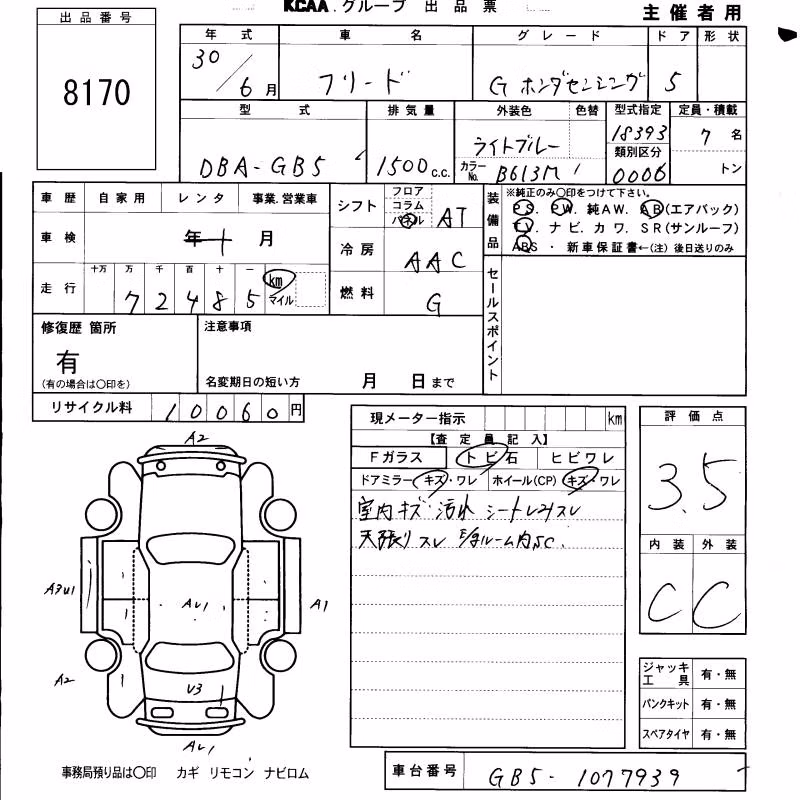 KCAA. グループ 出品票
主催者用
出品番号
8170
年式 車名 グレード ドア 形状
30/6月 フリード G ホンダセンシング 5
型式 排気量 外装色 色替 型式指定 定員・積載
18393 7名
DBA-GB5 1500c.c. ライトブルー カラーNo. B613M 類別区分 0006 トン
車歴 自家用 レンタ 事業.営業車
車検 年 月
走行 十万 万 千 百 十 一
72485 km マイル
シフト フロア コラム パネル AT
冷房 AAC
燃料 G
装備品 ※純正のみ○印をつけて下さい。
PS. PW. 純AW. AB(エアバック)
TV. ナビ. カワ. SR(サンルーフ)
ABS ・ 新車保証書←(注) 後日送りのみ
セールスポイント
修復歴 箇所
有
(有の場合は○印を)
注意事項
名変期日の短い方 月 日まで
リサイクル料 10060円
現メーター指示 km
【査定員記入】
Fガラス トビ石 ヒビワレ
ドアミラー キズ・ワレ ホイール(CP) キズ・ワレ
室内キズ 汚れ シート
天張りスレ ルーム内SC.
評価点
3.5
内装 外装
C C
ジャッキ工具 有・無
パンクキット 有・無
スペアタイヤ 有・無
A2
A3U1
AU1
A1
A2
U3
AU1
事務局預り品は○印 カギ リモコン ナビロム
車台番号 GB5-1077939